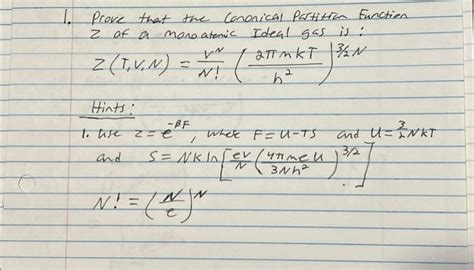 1. Prove that the Canonical Partition Function
Z of a monoatomic Ideal gas is :
Z(T,V,N) = V^N/N! (2πmkT/h²)^(3/2 N)
Hints:
1. Use Z = e^(-βF), where F = U-TS and U = 3/2 NkT
and S = Nk ln[eV/N (4πmeU/3Nh²)^(3/2)]
N! = (N/e)^N